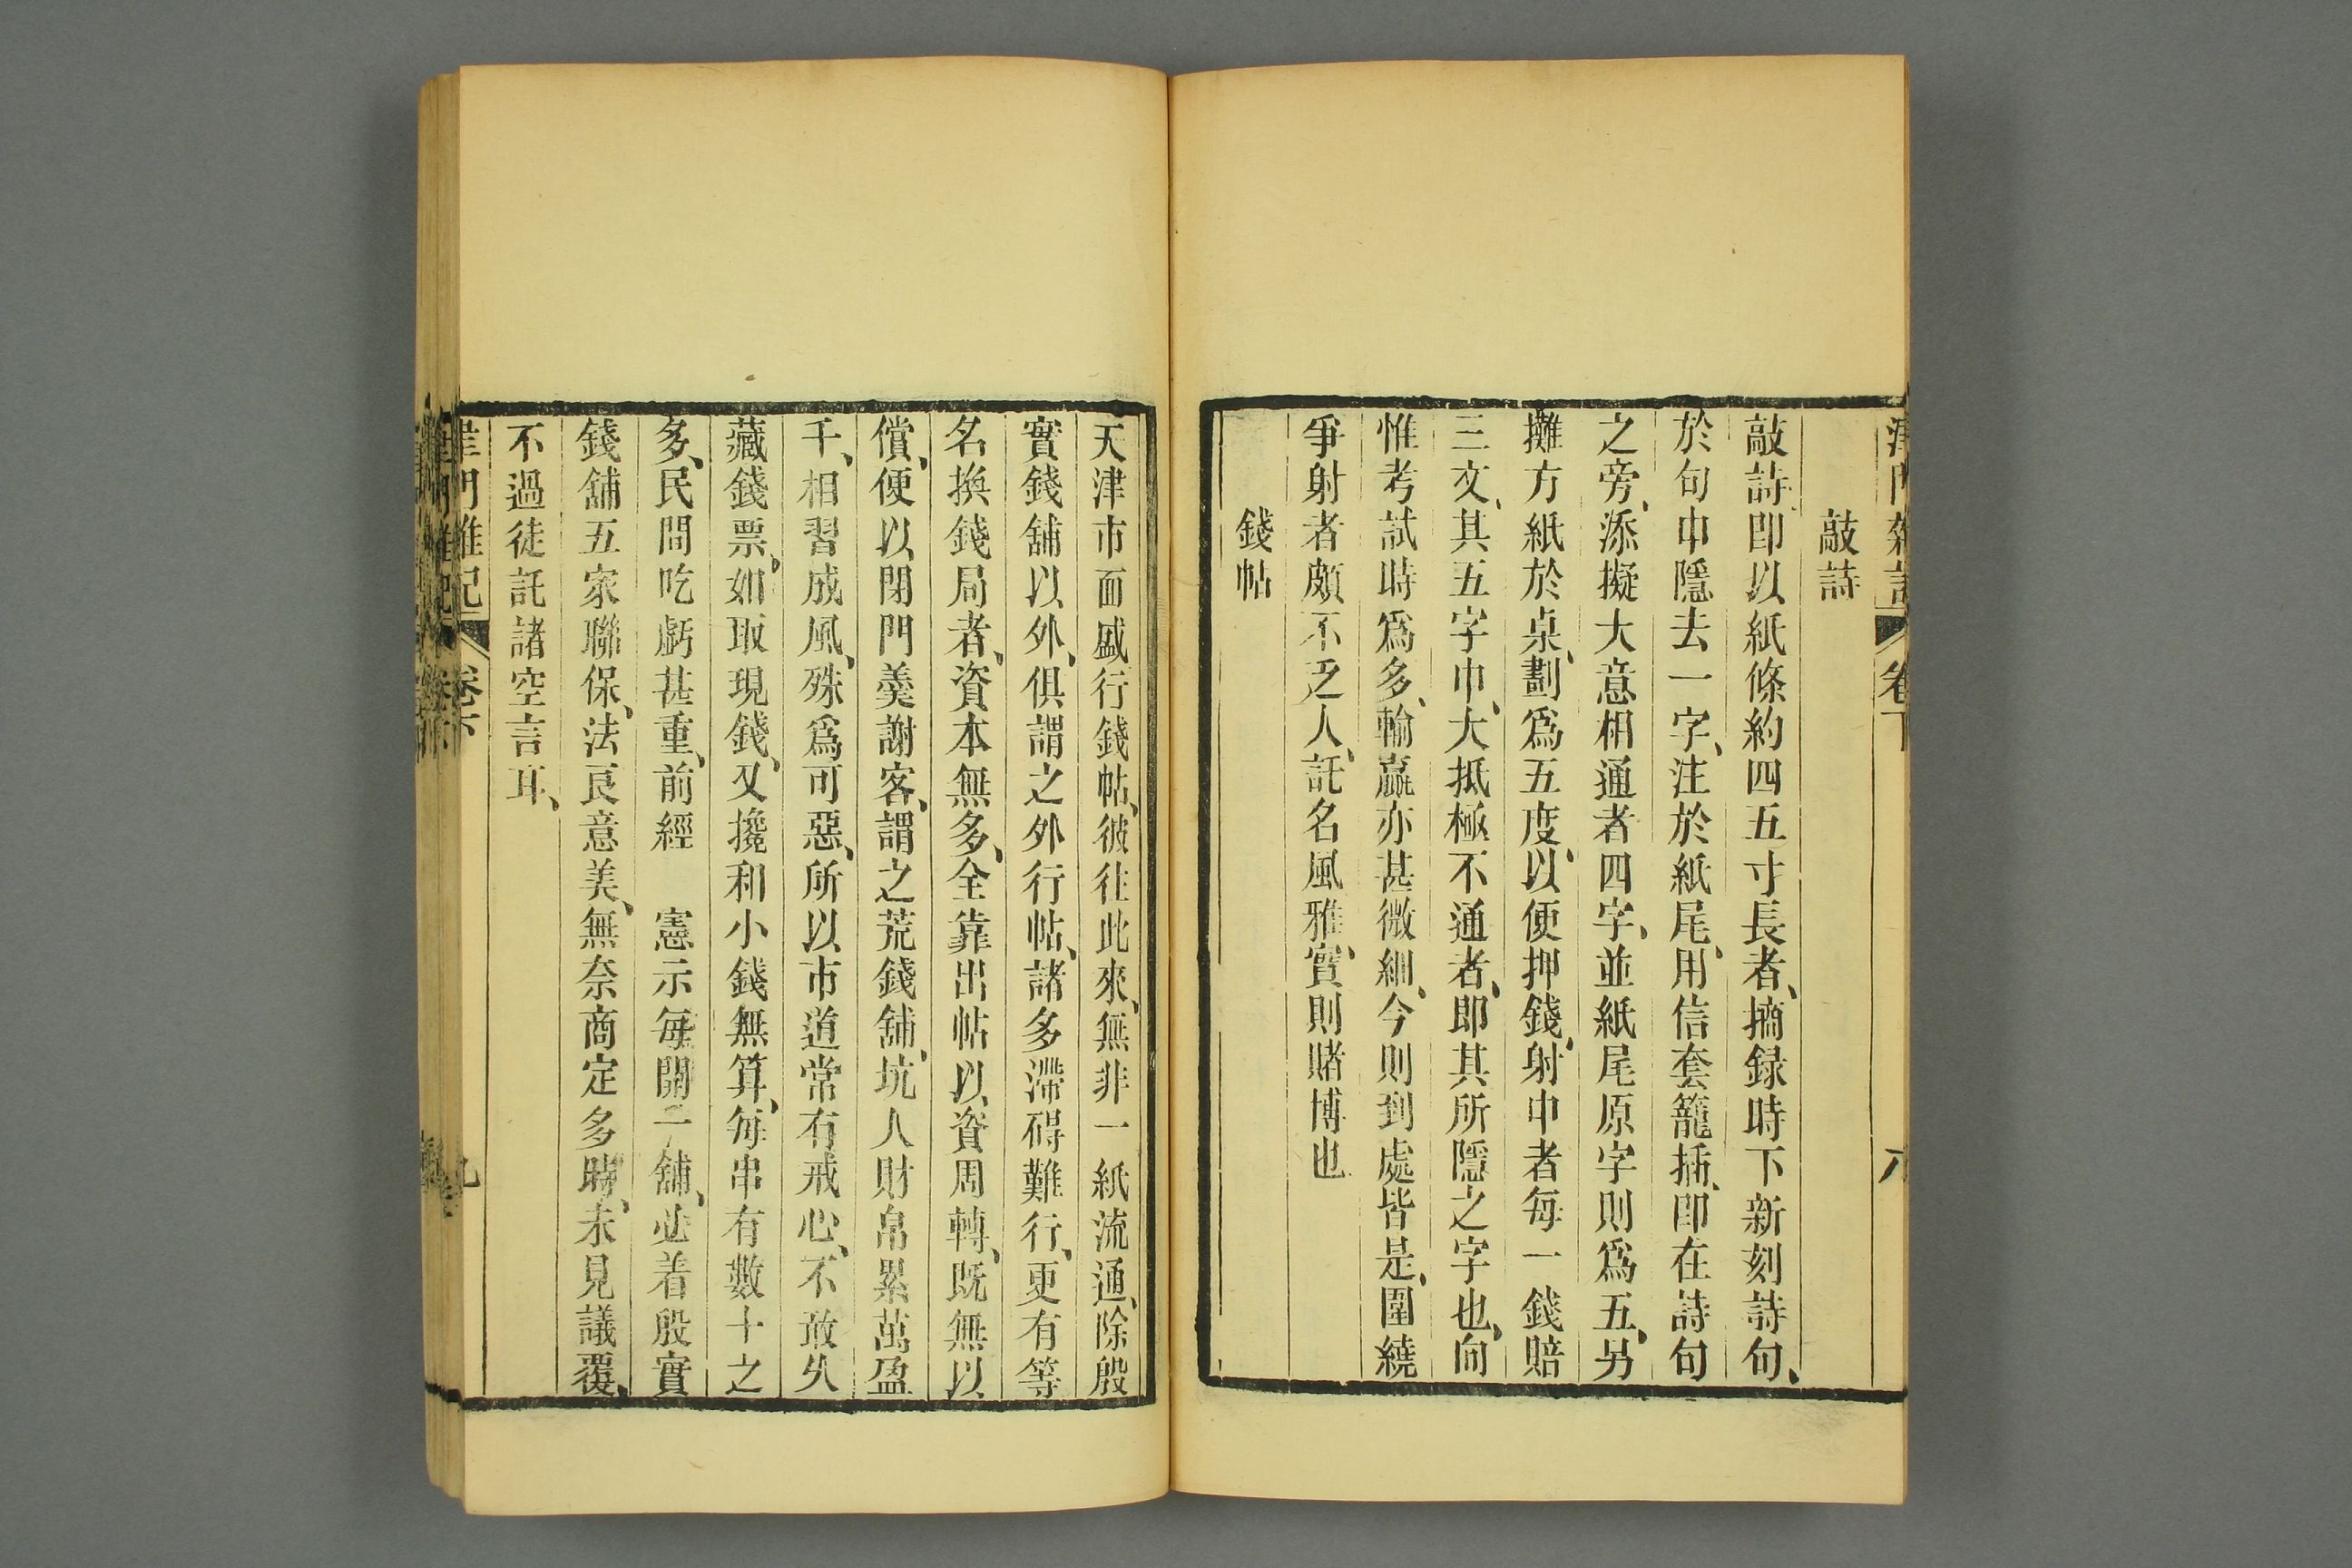 敲詩
敲詩、卽以紙條約四五寸長者、摘録時下新刻詩句、
於句中隱去一字、注於紙尾、用信套籠插、卽在詩句
之旁、添擬大意相通者四字、並紙尾原字則爲五、另
攤方紙於桌、劃爲五度、以便押錢、射中者每一錢賠
三文、其五字中、大抵極不通者、即其所隱之字也、向
惟考試時爲多、輸贏亦甚微細、今則到處皆是、圍繞
爭射者頗不乏人、託名風雅、實則賭博也
錢帖
天津市面盛行錢帖、彼往此來、無非一紙流通、除殷
實錢舖以外、俱謂之外行帖、諸多滯碍難行、更有等
名換錢局者、資本無多、全靠出帖以資周轉、既無以
償、便以閉門羹謝客、謂之荒錢舖、坑人財帛累萬盈
千、相習成風、殊爲可惡、所以市道常有戒心、不敢久
藏錢票、如取現錢、又攙和小錢無算、每串有數十之
多、民間吃虧甚重、前經　憲示每開一舖、必着殷實
錢舖五家聯保、法良意美、無奈商定多時、未見議覆、
不過徒託諸空言耳、